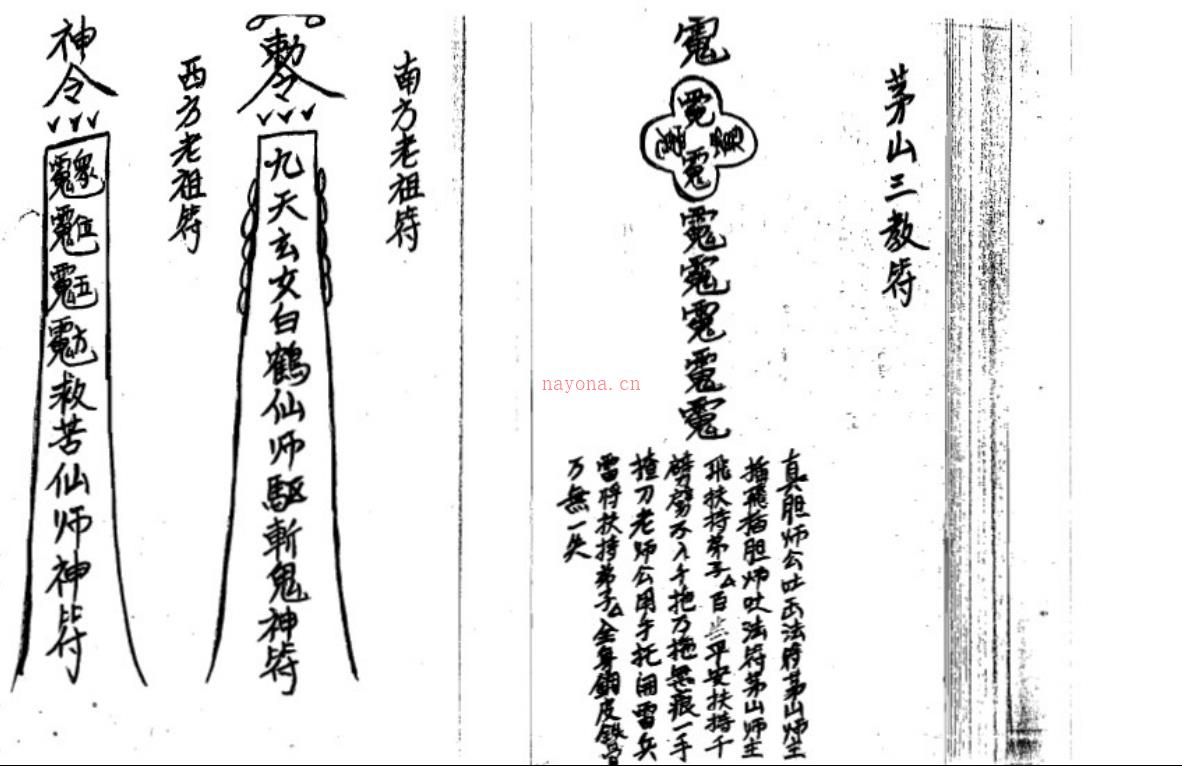 茅山三教符
真胆师公吐出法符茅山师主
插飛插胆师吐法符茅山师主
飛扶持弟子△百 平安扶持千
劈 不入千拖万拖無痕一手
揸刀老师公用手托開雷兵
雷将扶持弟子△全身銅皮鉄骨
万無一失
南方老祖符
勅令
九天玄女白鶴仙师驅斬鬼神符
西方老祖符
神令
救苦仙师神符
nayona.cn